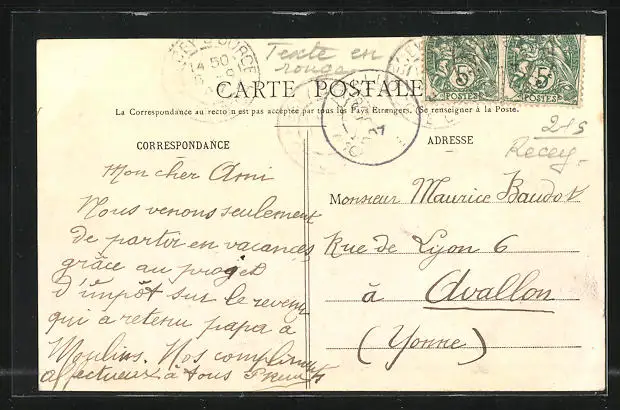 RECEY-S-OURCE
14 50
Texte en
rouge
5
POSTES
5
POSTES
CARTE POSTALE
La Correspondance au recto n'est pas acceptée par tous les Pays Etrangers. (Se renseigner à la Poste.
215
Recey.
CORRESPONDANCE
Mon cher Ami
Nous venons seulement
de partir en vacances
grâce au projet
d'impôt sur le revenu
qui a retenu papa à
Moulins. Nos compliments
affectueux à tous
ADRESSE
Monsieur Maurice Baudot
Rue de Lyon 6
à Avallon
(Yonne)